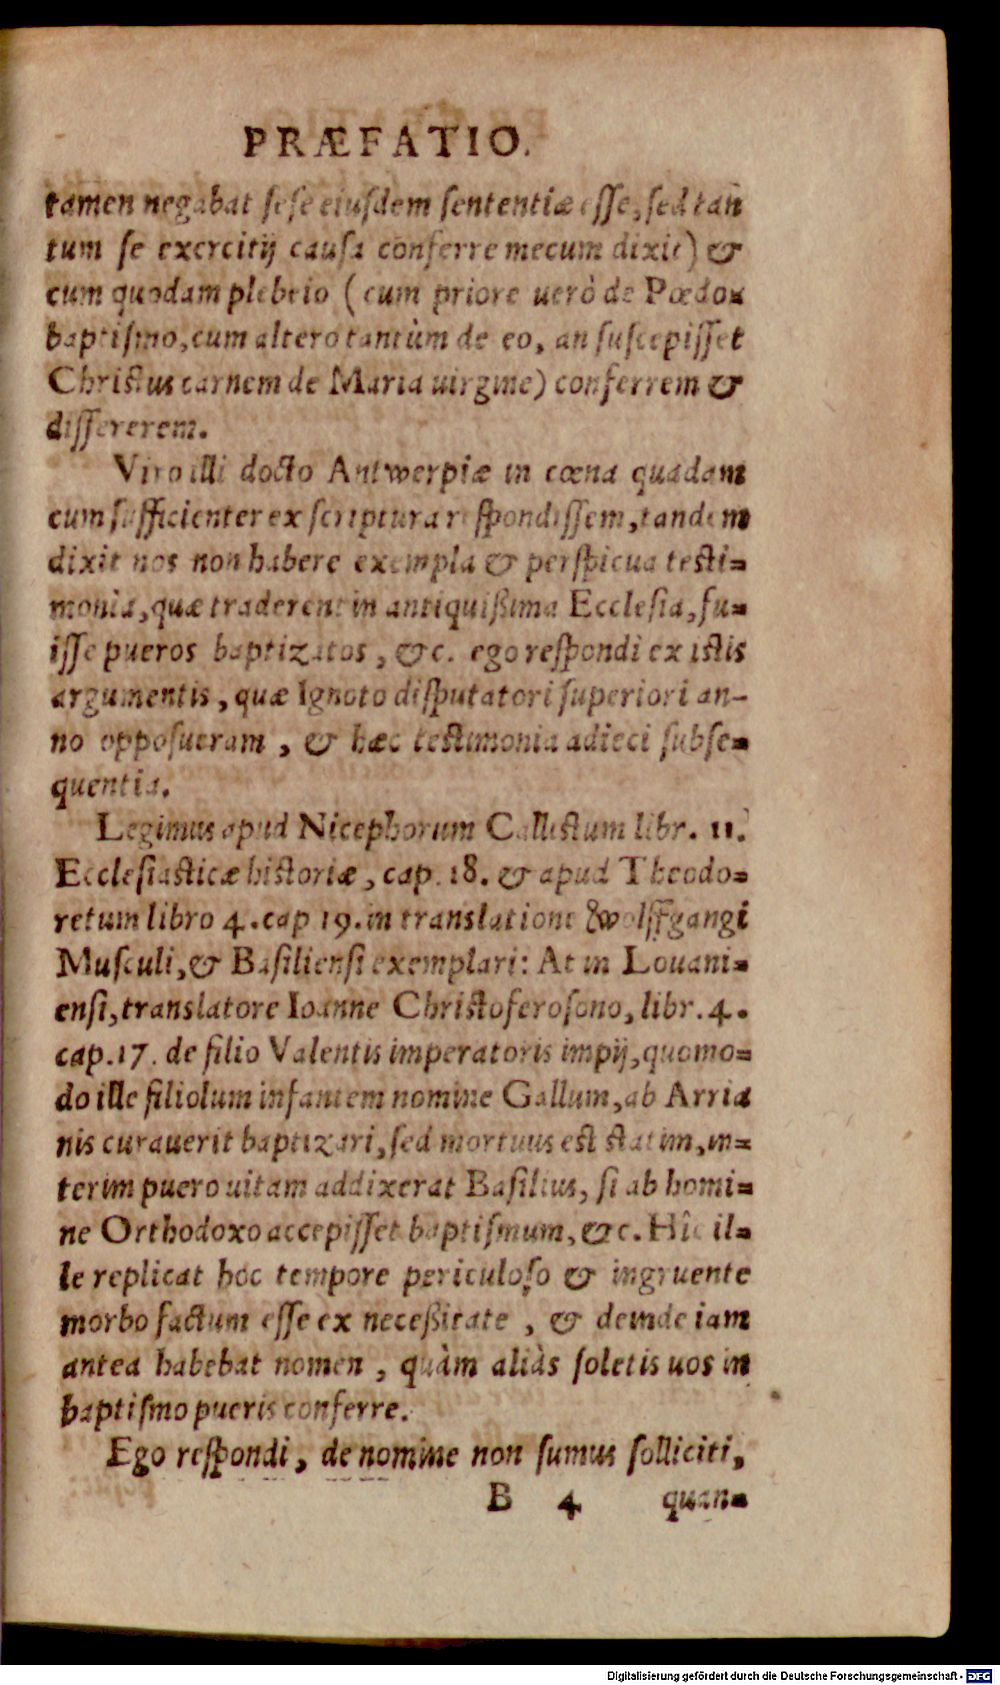 PRÆFATIO.
tamen negabat sese eiusdem sententiæ esse, sed tan
tum se exercitij causa conferre mecum dixit) &
cum quodam plebeio (cum priore uerò de Pœdo-
baptismo, cum altero tantùm de eo, an suscepisset
Christus carnem de Maria uirgine) conferrem &
dissererem.
Viro illi docto Antwerpiæ in cœna quadam
cum sufficienter ex scriptura respondissem, tandem
dixit nos non habere exempla & perspicua testi-
monia, quæ traderent in antiquißima Ecclesia, fu-
isse pueros baptizatos, &c. ego respondi ex istis
argumentis, quæ Ignoto disputatori superiori an-
no opposueram, & hæc testimonia adieci subse-
quentia.
Legimus apud Nicephorum Callistum libr. 11.
Ecclesiasticæ historiæ, cap. 18. & apud Theodo-
retum libro 4. cap 19. in translatione Wolffgangi
Musculi, & Basiliensi exemplari: At in Louani-
ensi, translatore Ioanne Christofersono, libr. 4.
cap. 17. de filio Valentis imperatoris impij, quomo-
do ille filiolum infantem nomine Gallum, ab Arria
nis curauerit baptizari, sed mortuus est statim, in-
terim puero uitam addixerat Basilius, si ab homi-
ne Orthodoxo accepisset baptismum, &c. Hîc il-
le replicat hoc tempore periculoso & ingruente
morbo factum esse ex neceßitate, & deinde iam
antea habebat nomen, quàm aliàs soletis uos in
baptismo pueris conferre.
Ego respondi, de nomine non sumus solliciti,
B 4 quan-
Digitalisierung gefördert durch die Deutsche Forschungsgemeinschaft - DFG